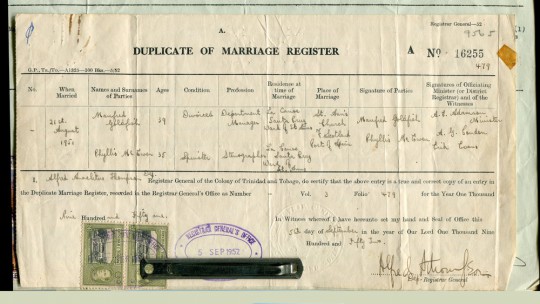 Registrar General—12
A.
9565
DUPLICATE OF MARRIAGE REGISTER
A No. 16255
479
No. When Married Names and Surnames of Parties Ages Condition Profession Residence at time of Marriage Place of Marriage Signature of Parties Signatures of Officiating Minister (or District Registrar) and of the Witnesses
21st August 1951
Manfred Goldfish 39 Divorced Department Manager La Canoa Santa Cruz Ward of St. Anns
St. Ann's Church of Scotland Port of Spain
Manfred Goldfish
Minister
Phyllis Mc Ewen 35 Spinster Stenographer La Canoa Santa Cruz Ward of St. Anns
Phyllis Mc Ewen
Erik Evans
I, Alfred Registrar General of the Colony of Trinidad and Tobago, do certify that the above entry is a true and correct copy of an entry in
the Duplicate Marriage Register, recorded in the Registrar General's Office as Number Vol. 3 Folio 479 for the Year One Thousand
Nine Hundred and Fifty one.
In Witness whereof I have hereunto set my hand and Seal of Office this
5th day of September in the year of Our Lord One Thousand Nine
Hundred and Fifty Two.
REGISTRAR GENERAL'S OFFICE
5 SEP 1952
Registrar General